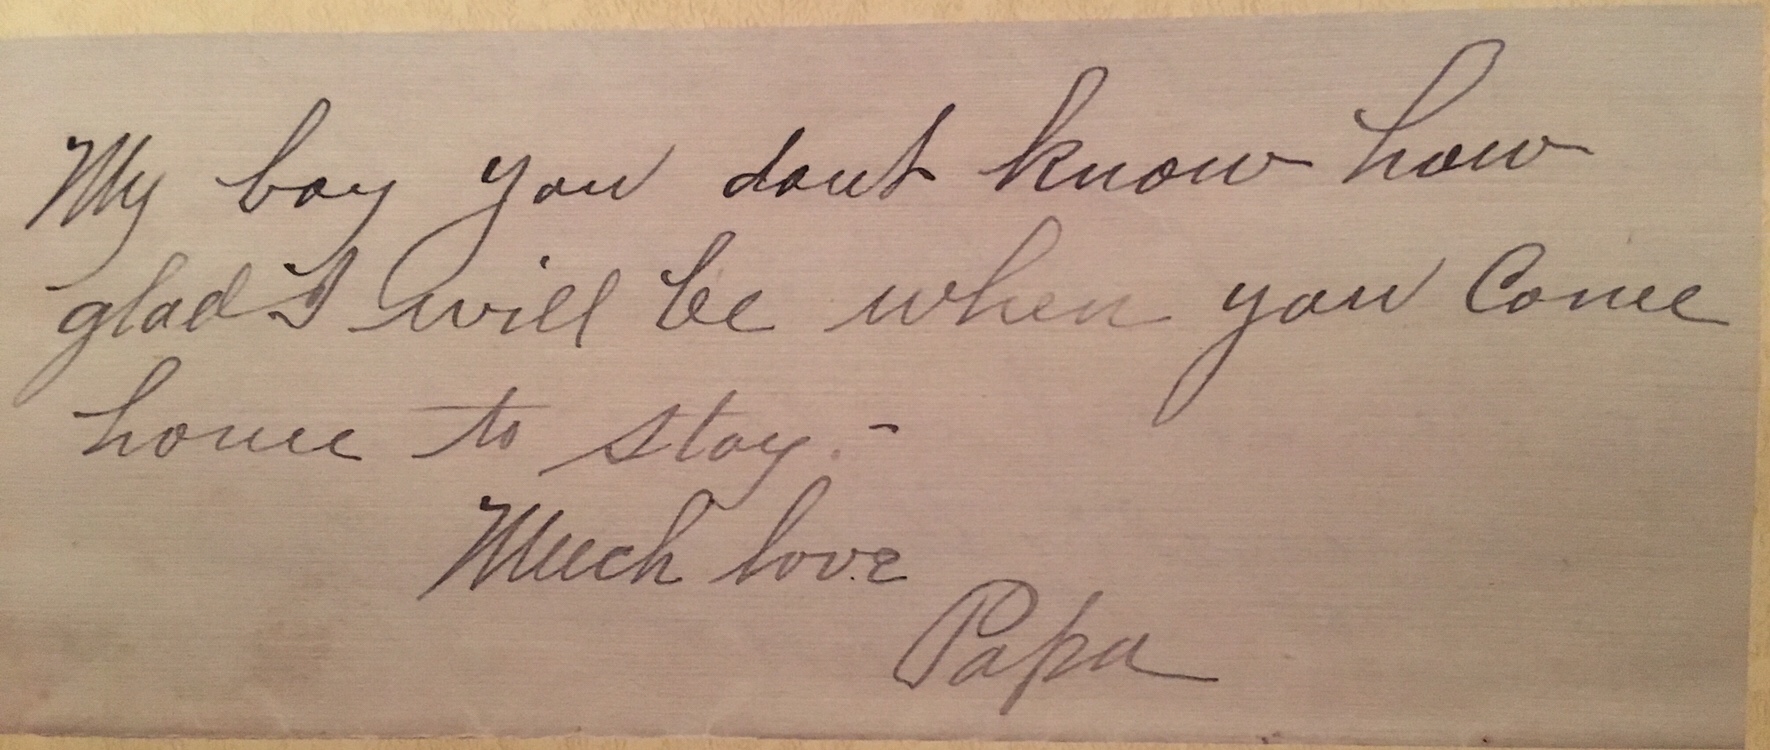 My boy you dont know how
glad I will be when you Come
home to stay. -
Much love
Papa